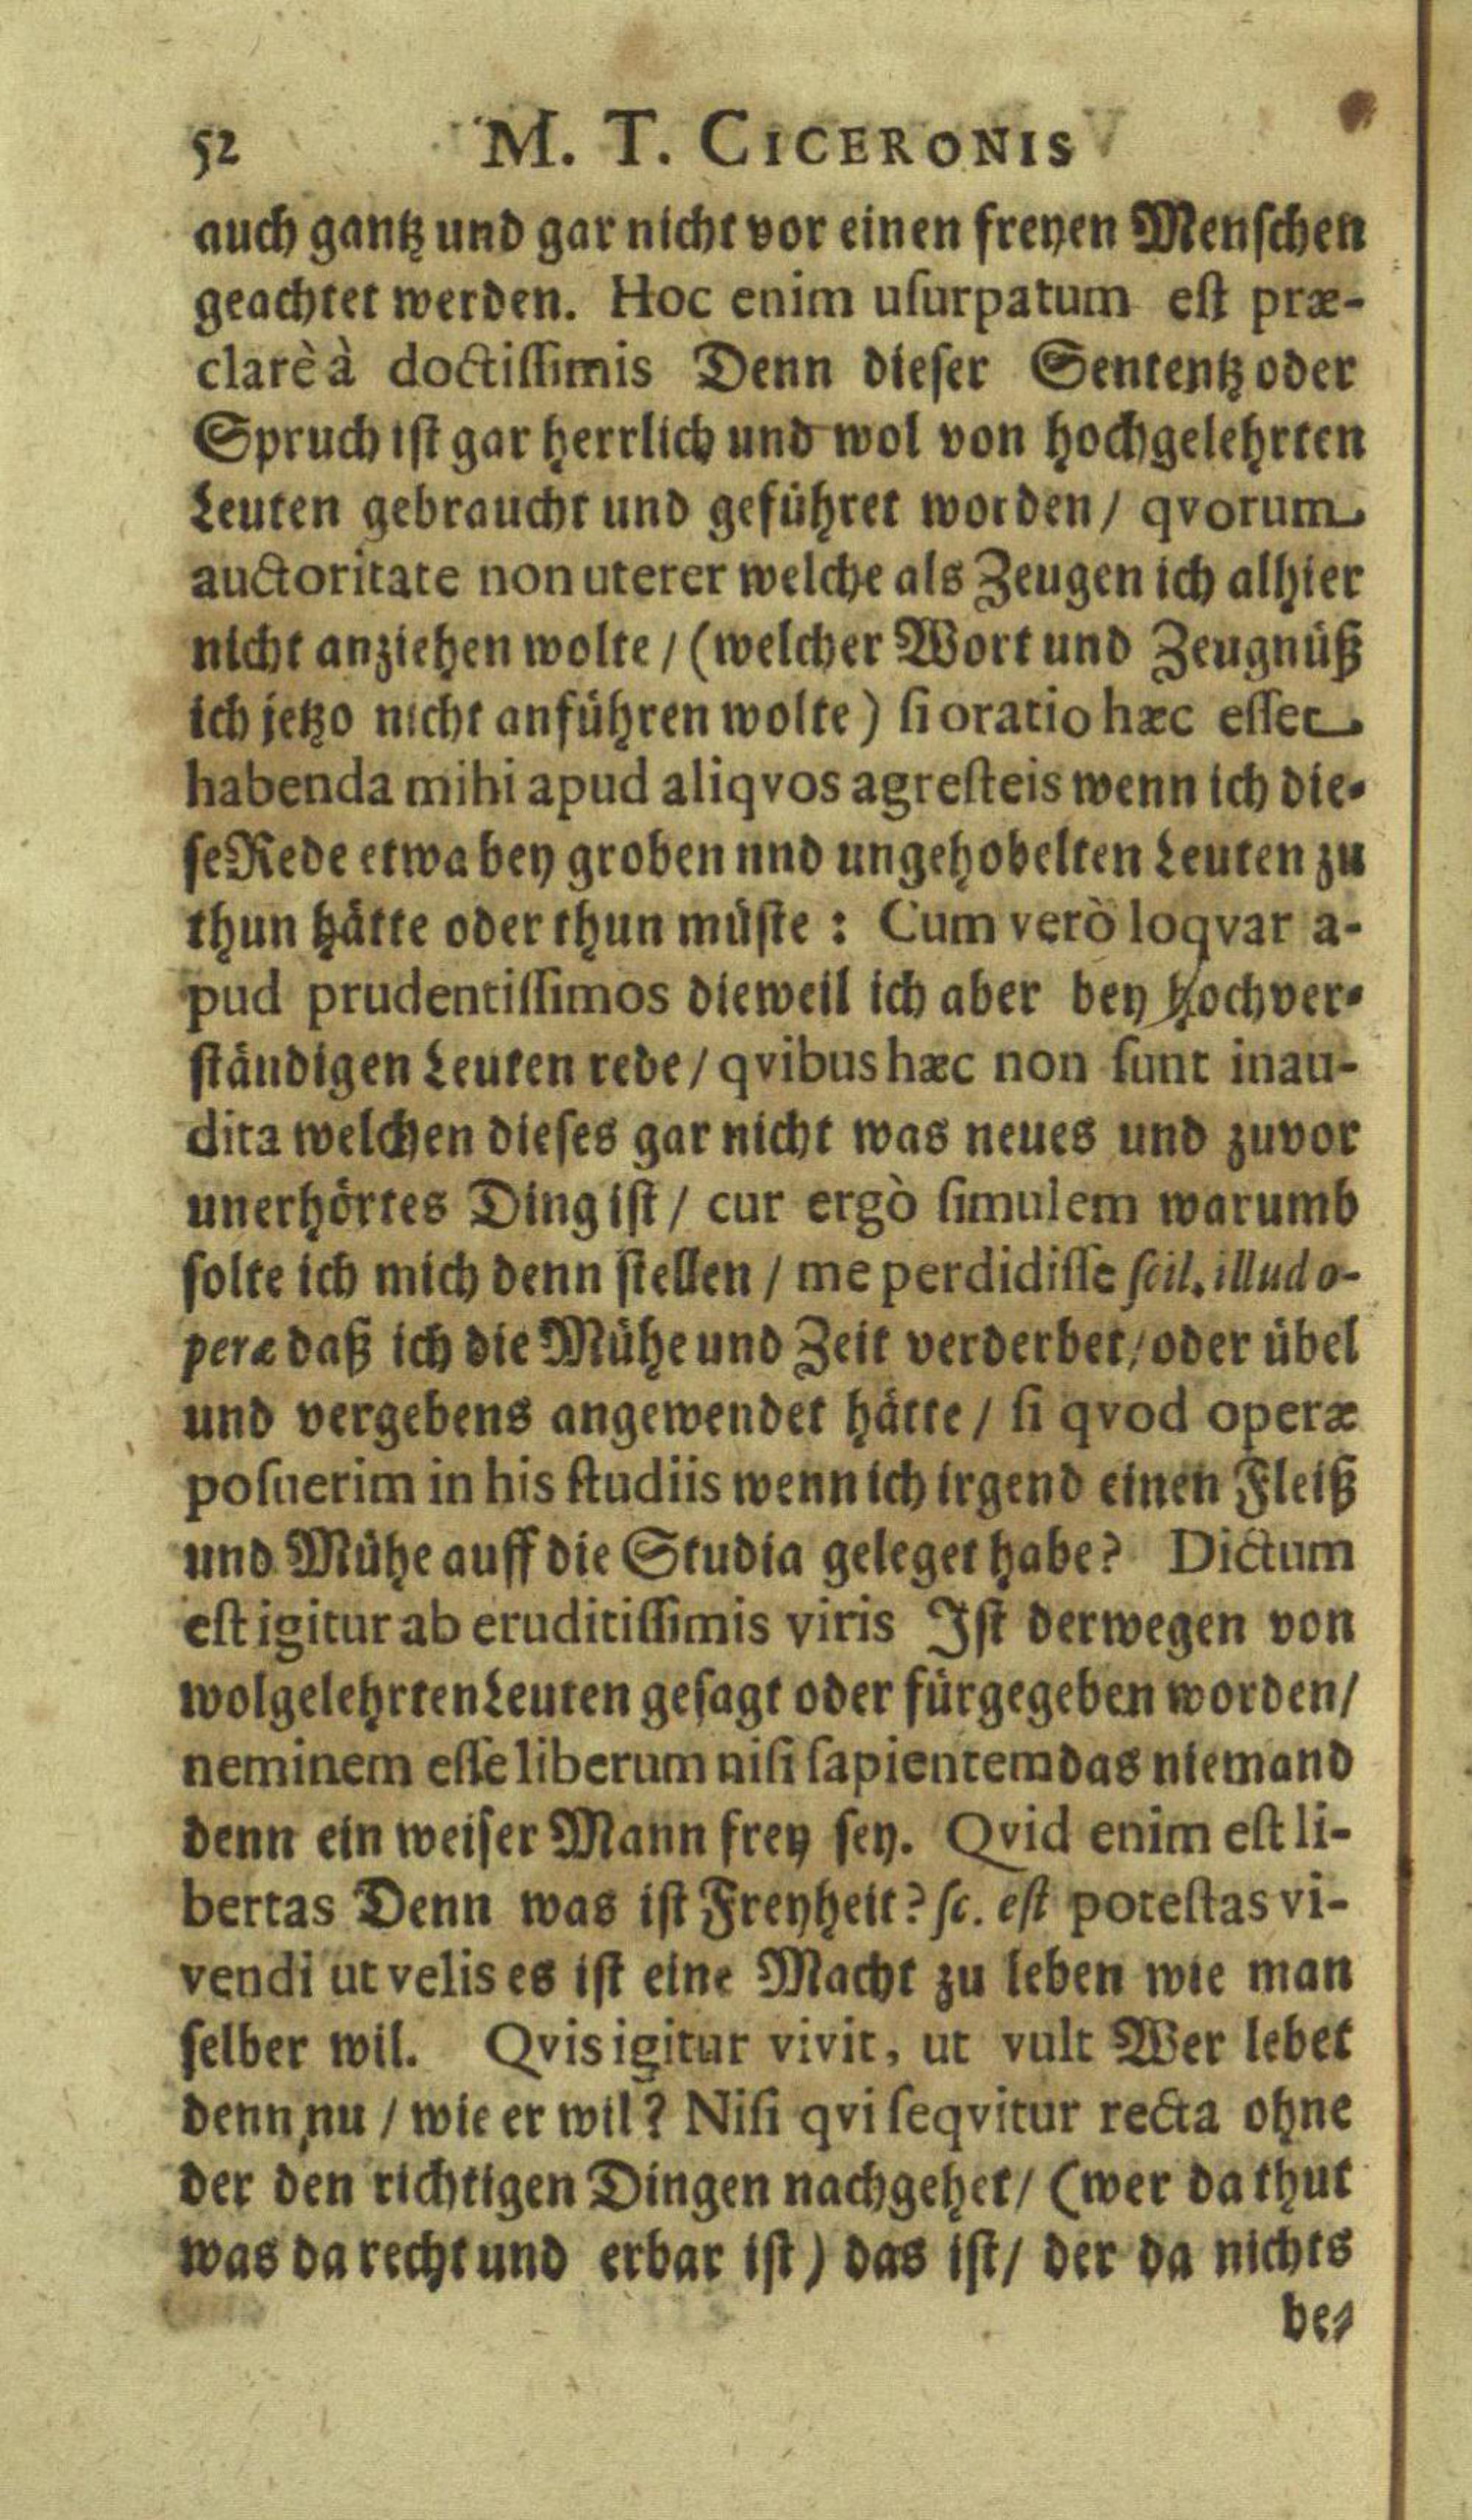 52 M. T. CICERONIS
auch gantz und gar nicht vor einen freyen Menschen
geachtet werden. Hoc enim uſurpatum eſt præ-
clarè à doctiſſimis Denn dieſer Sententz oder
Spruch iſt gar herrlich und wol von hochgelehrten
Leuten gebraucht und geführet worden / qvorum
auctoritate non uterer welche als Zeugen ich alhier
nicht anziehen wolte / (welcher Wort und Zeugnüß
ich jetzo nicht anführen wolte) ſi oratio hæc eſſet
habenda mihi apud aliqvos agreſteis wenn ich die-
ſe Rede etwa bey groben nnd ungehobelten Leuten zu
thun hätte oder thun müſte : Cum verò loqvar a-
pud prudentiſſimos dieweil ich aber bey Hochver-
ſtändigen Leuten rede / qvibus hæc non ſunt inau-
dita welchen dieſes gar nicht was neues und zuvor
unerhörtes Ding iſt / cur ergò ſimulem warumb
ſolte ich mich denn ſtellen / me perdidiſſe ſcil. illud o-
peræ daß ich die Mühe und Zeit verderbet / oder übel
und vergebens angewendet hätte / ſi qvod operæ
poſuerim in his ſtudiis wenn ich irgend einen Fleiß
und Mühe auff die Studia geleget habe? Dictum
eſt igitur ab eruditiſſimis viris Iſt derwegen von
wolgelehrten Leuten geſagt oder fürgegeben worden /
neminem eſſe liberum niſi ſapientem das niemand
denn ein weiſer Mann frey ſey. Qvid enim eſt li-
bertas Denn was iſt Freyheit? ſc. eſt poteſtas vi-
vendi ut velis es iſt eine Macht zu leben wie man
ſelber wil. Qvis igitur vivit, ut vult Wer lebet
denn nu / wie er wil? Niſi qvi ſeqvitur recta ohne
der den richtigen Dingen nachgehet / (wer da thut
was da recht und erbar iſt) das iſt / der da nichts
be-